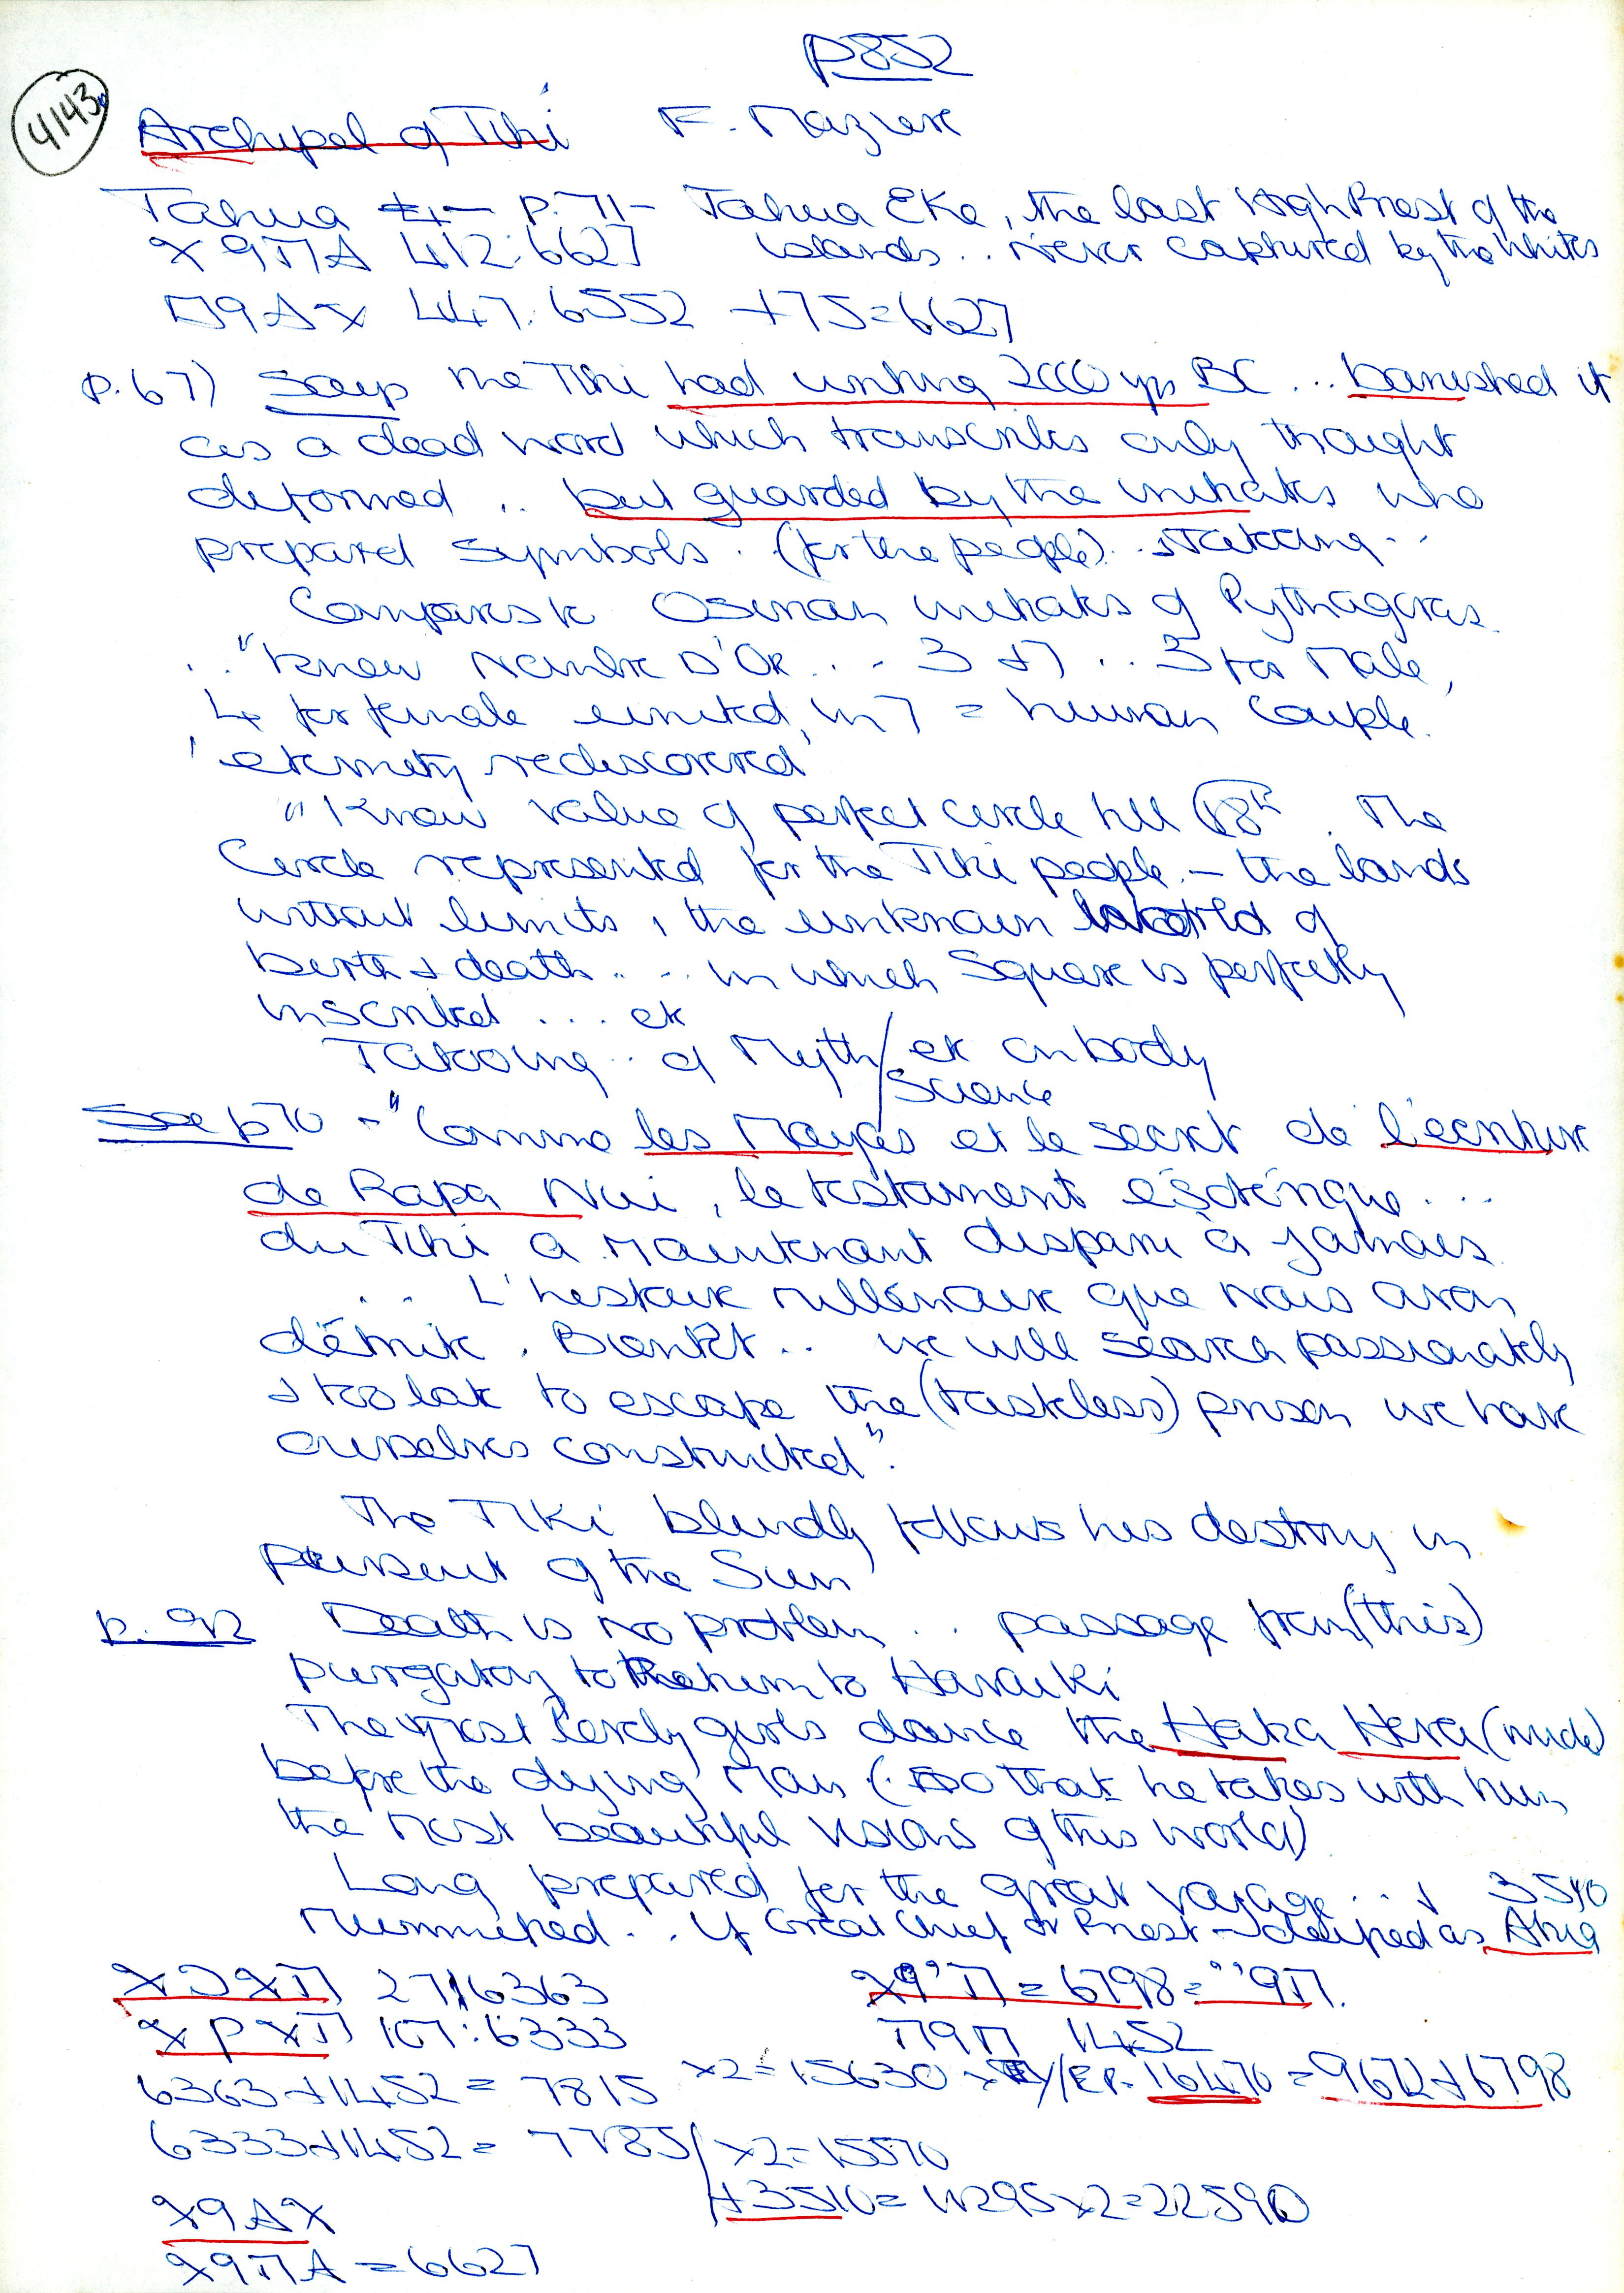 p852
4143
Archipel of Tiki F. Mazière
Tahua p.71- Tahua Eke, the last High Priest of the
412:6627 Islands .. never captured by the whites
447:6552 +75=6627
p.67) Says the Tiki had writing 2000 yrs BC ... banished it
as a dead word which transcribes only thought
deformed .. but guarded by the initiates who
prepared symbols. (for the people) .. tatooing ..
Compares to Osirian initiates of Pythagoras.
.. "Knew Nombre D'Or ... 3 +7 .. 3 for Male,
4 for female united, in 7 = human couple.
'eternity rediscovered'
"Know value of perfect circle till 18th. The
Circle represented for the Tiki people - the lands
without limits, the unknown world of
birth & death ... in which Square is perfectly
inscribed ... etc
Tatooing .. of Myth/ etc on body
Science
See p70 - "Comme les Mayas et le secret de l'ecriture
de Rapa Nui, le testament esotérique ...
du Tiki a maintenant disparu à jamais.
... L'histoire millénaire que nous avons
détruite. Bientôt .. we will search passionately
& too late to escape the (tasteless) prison we have
ourselves constructed".
The Tiki blindly follows his destiny in
pursuit of the Sun
p. 92 Death is no problem .. passage from (this)
purgatory to the return to Havaiki
The most lovely girls dance the Haka Heva (nude)
before the dying man (so that he takes with him
the most beautiful visions of this world)
Long prepared for the great voyage ... & 3510
mummified .. if Great Chief or Priest - deified as Atua
271:6363 = 6798 =
107:6333 1452
6363+1452 = 7815 x2=15630 16470 = 9672+6798
6333+1452= 7785/ x2=15570
+3510= 11295x2=22590
= 6627